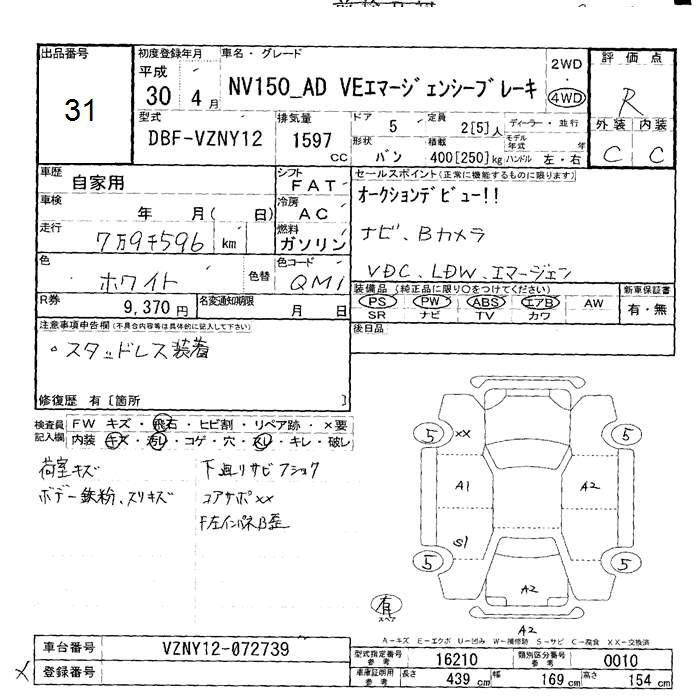 出品番号
31
初度登録年月
平成
30年 4月
車名・グレード
NV150_AD VEエマージェンシーブレーキ
2WD
・
4WD
評価点
R
外装 内装
C C
型式
DBF-VZNY12
排気量
1597
cc
ドア
5
定員
2[5]人
ディーラー・並行
形状
バン
積載
400[250]kg
モデル年式 年
ハンドル 左・右
車歴
自家用
シフト
FAT
セールスポイント(正常に機能するものに限ります)
オークションデビュー!!
ナビ、Bカメラ
VDC、LDW、エマージェン
車検
年 月( 日)
冷房
AC
走行
7万9千596 km
燃料
ガソリン
色
ホワイト
色替
色コード
QM1
R券
9,370円
名変通知期限
月 日
装備品(純正品に限り○をつけてください)
PS PW ABS エアB AW
SR ナビ TV カワ
新車保証書
有・無
注意事項申告欄(不具合内容等は具体的に記入して下さい)
。スタッドレス装着
修復歴 有[箇所 ]
後日品
検査員記入欄
FW キズ・飛石・ヒビ割・リペア跡・×要
内装 キズ・汚レ・コゲ・穴・スレ・キレ・破レ
荷室キズ
ボデー鉄粉、スリキズ
下廻リサビ
コアサポXX
F左インパネB歪
5 XX 5
A1 A2
S1
5 5
A2
有
スペア
A2
A-キズ E-エクボ U-凹み W-補修跡 S-サビ C-腐食 XX-交換済
車台番号
VZNY12-072739
登録番号
X
型式指定番号
参考
16210
類別区分番号
参考
0010
車庫証明用
参考
長さ
439 cm
幅
169 cm
高さ
154 cm